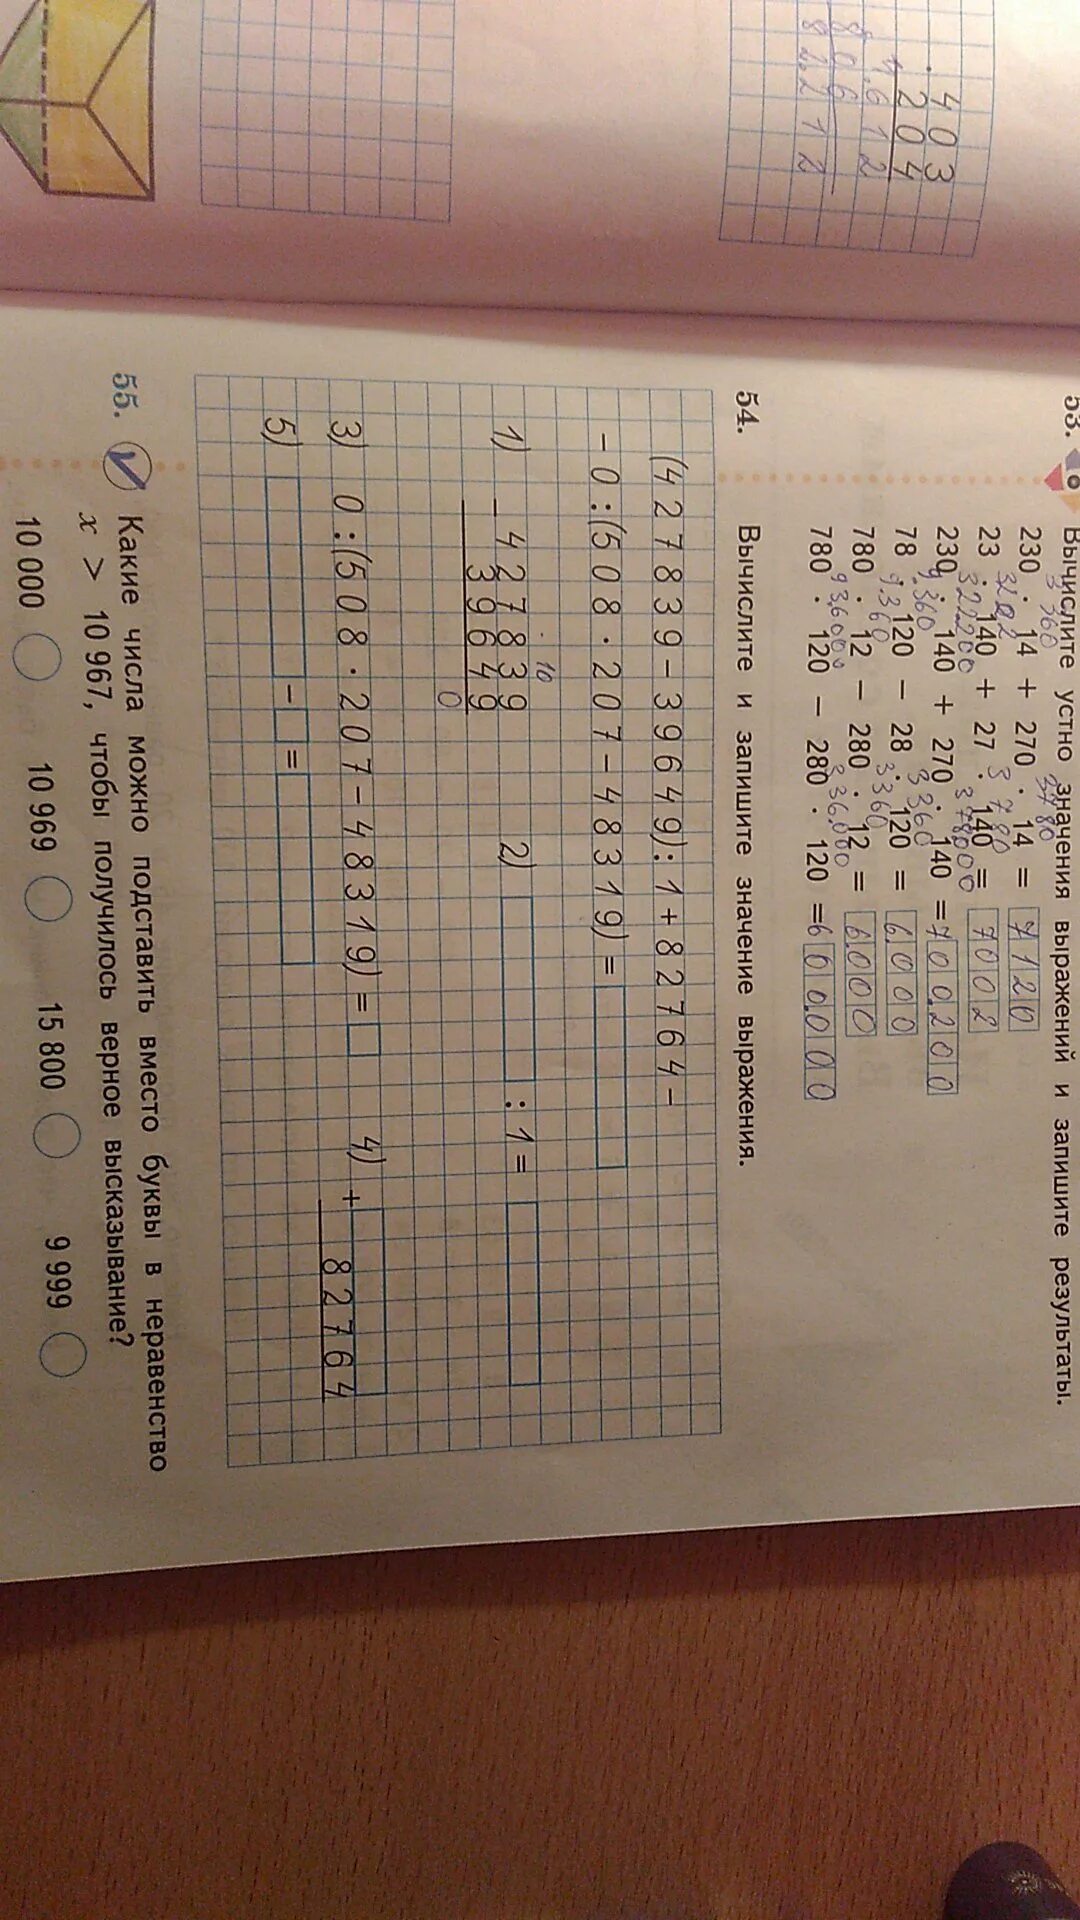 403
204
1612
806
82212
53.
Вычислите устно значения выражений и запишите результаты.
230 · 14 + 270 · 14 = 7120
23 · 140 + 27 · 140 = 7002
230 · 140 + 270 · 140 = 700200
78 · 120 − 28 · 120 = 6000
780 · 12 − 280 · 12 = 6000
780 · 120 − 280 · 120 = 600000
54. Вычислите и запишите значение выражения.
(427839−39649):1+82764−
−0:(508·207−48319)=
10
1) −427839 2) :1=
39649
0
3) 0:(508·207−48319)= 4) +
82764
5) − =
55. Какие числа можно подставить вместо буквы в неравенство
x > 10 967, чтобы получилось верное высказывание?
10 000 10 969 15 800 9 999